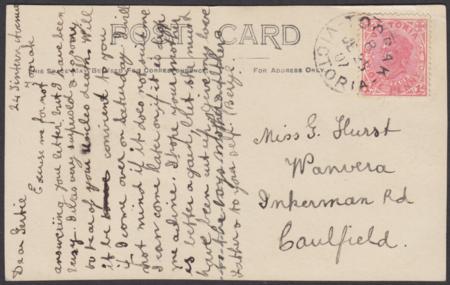 POST CARD
THIS SPACE MAY BE USED FOR CORRESPONDENCE
FOR ADDRESS ONLY.
24 Sintern Avenue
Toorak
Dear Gertie
Excuse me for not
answering your letter, but I have been
busy. I was very suprised & sorry
to hear of your Uncles death. Will
it be convinent to you
if I come over on Saturday. I will
not mind if it does not suit one
I can come later on, if it is
me a line. I hope your mother
is better again, Clot she must
have been cut up, give my love
to the boys mother &
fathers to your self. Beryl
Miss G. Hurst
Wanvera
Inkerman Rd
Caulfield.
TOORAK
VICTORIA
VICTORIA